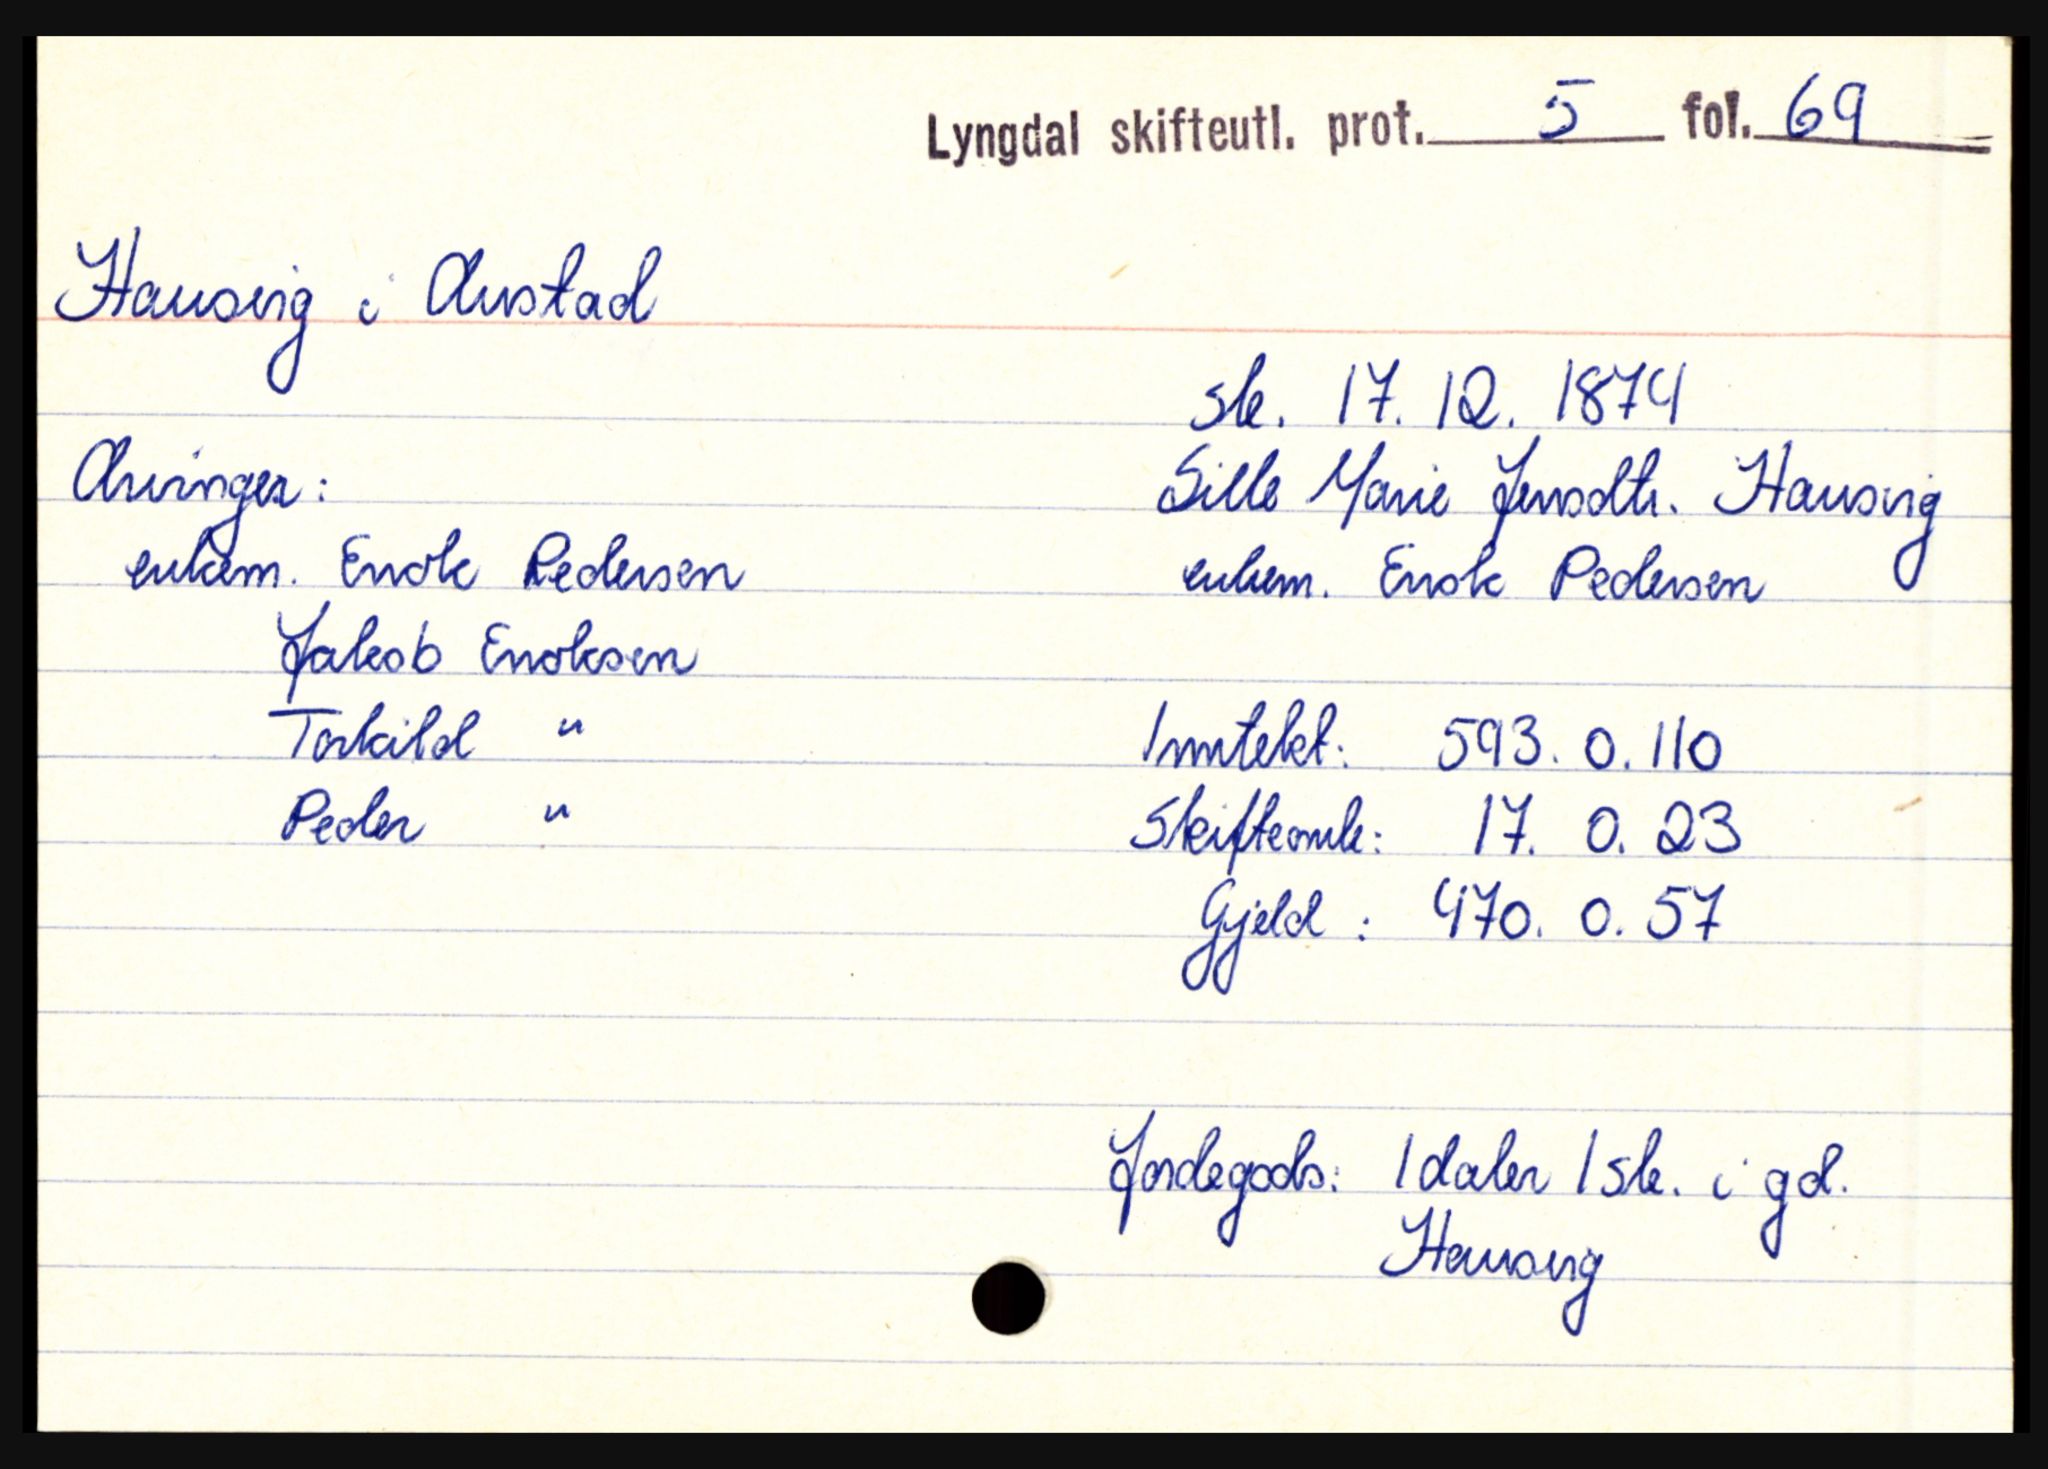 Lyngdal skifteutl. prot. 5 fol. 69
Hausvig i Austad
sk. 17. 12. 1874
Arvinger:
Sille Marie Jensdtr. Hausvig
enkem. Enok Pedersen
enkem. Enok Pedersen
Jakob Enoksen
Torkild "
Inntekt: 593. 0. 110
Peder "
Skifteomk: 17. 0. 23
Gjeld : 470. 0. 57
Jordegods: 1 daler 1 sk. i gd.
Hausvig